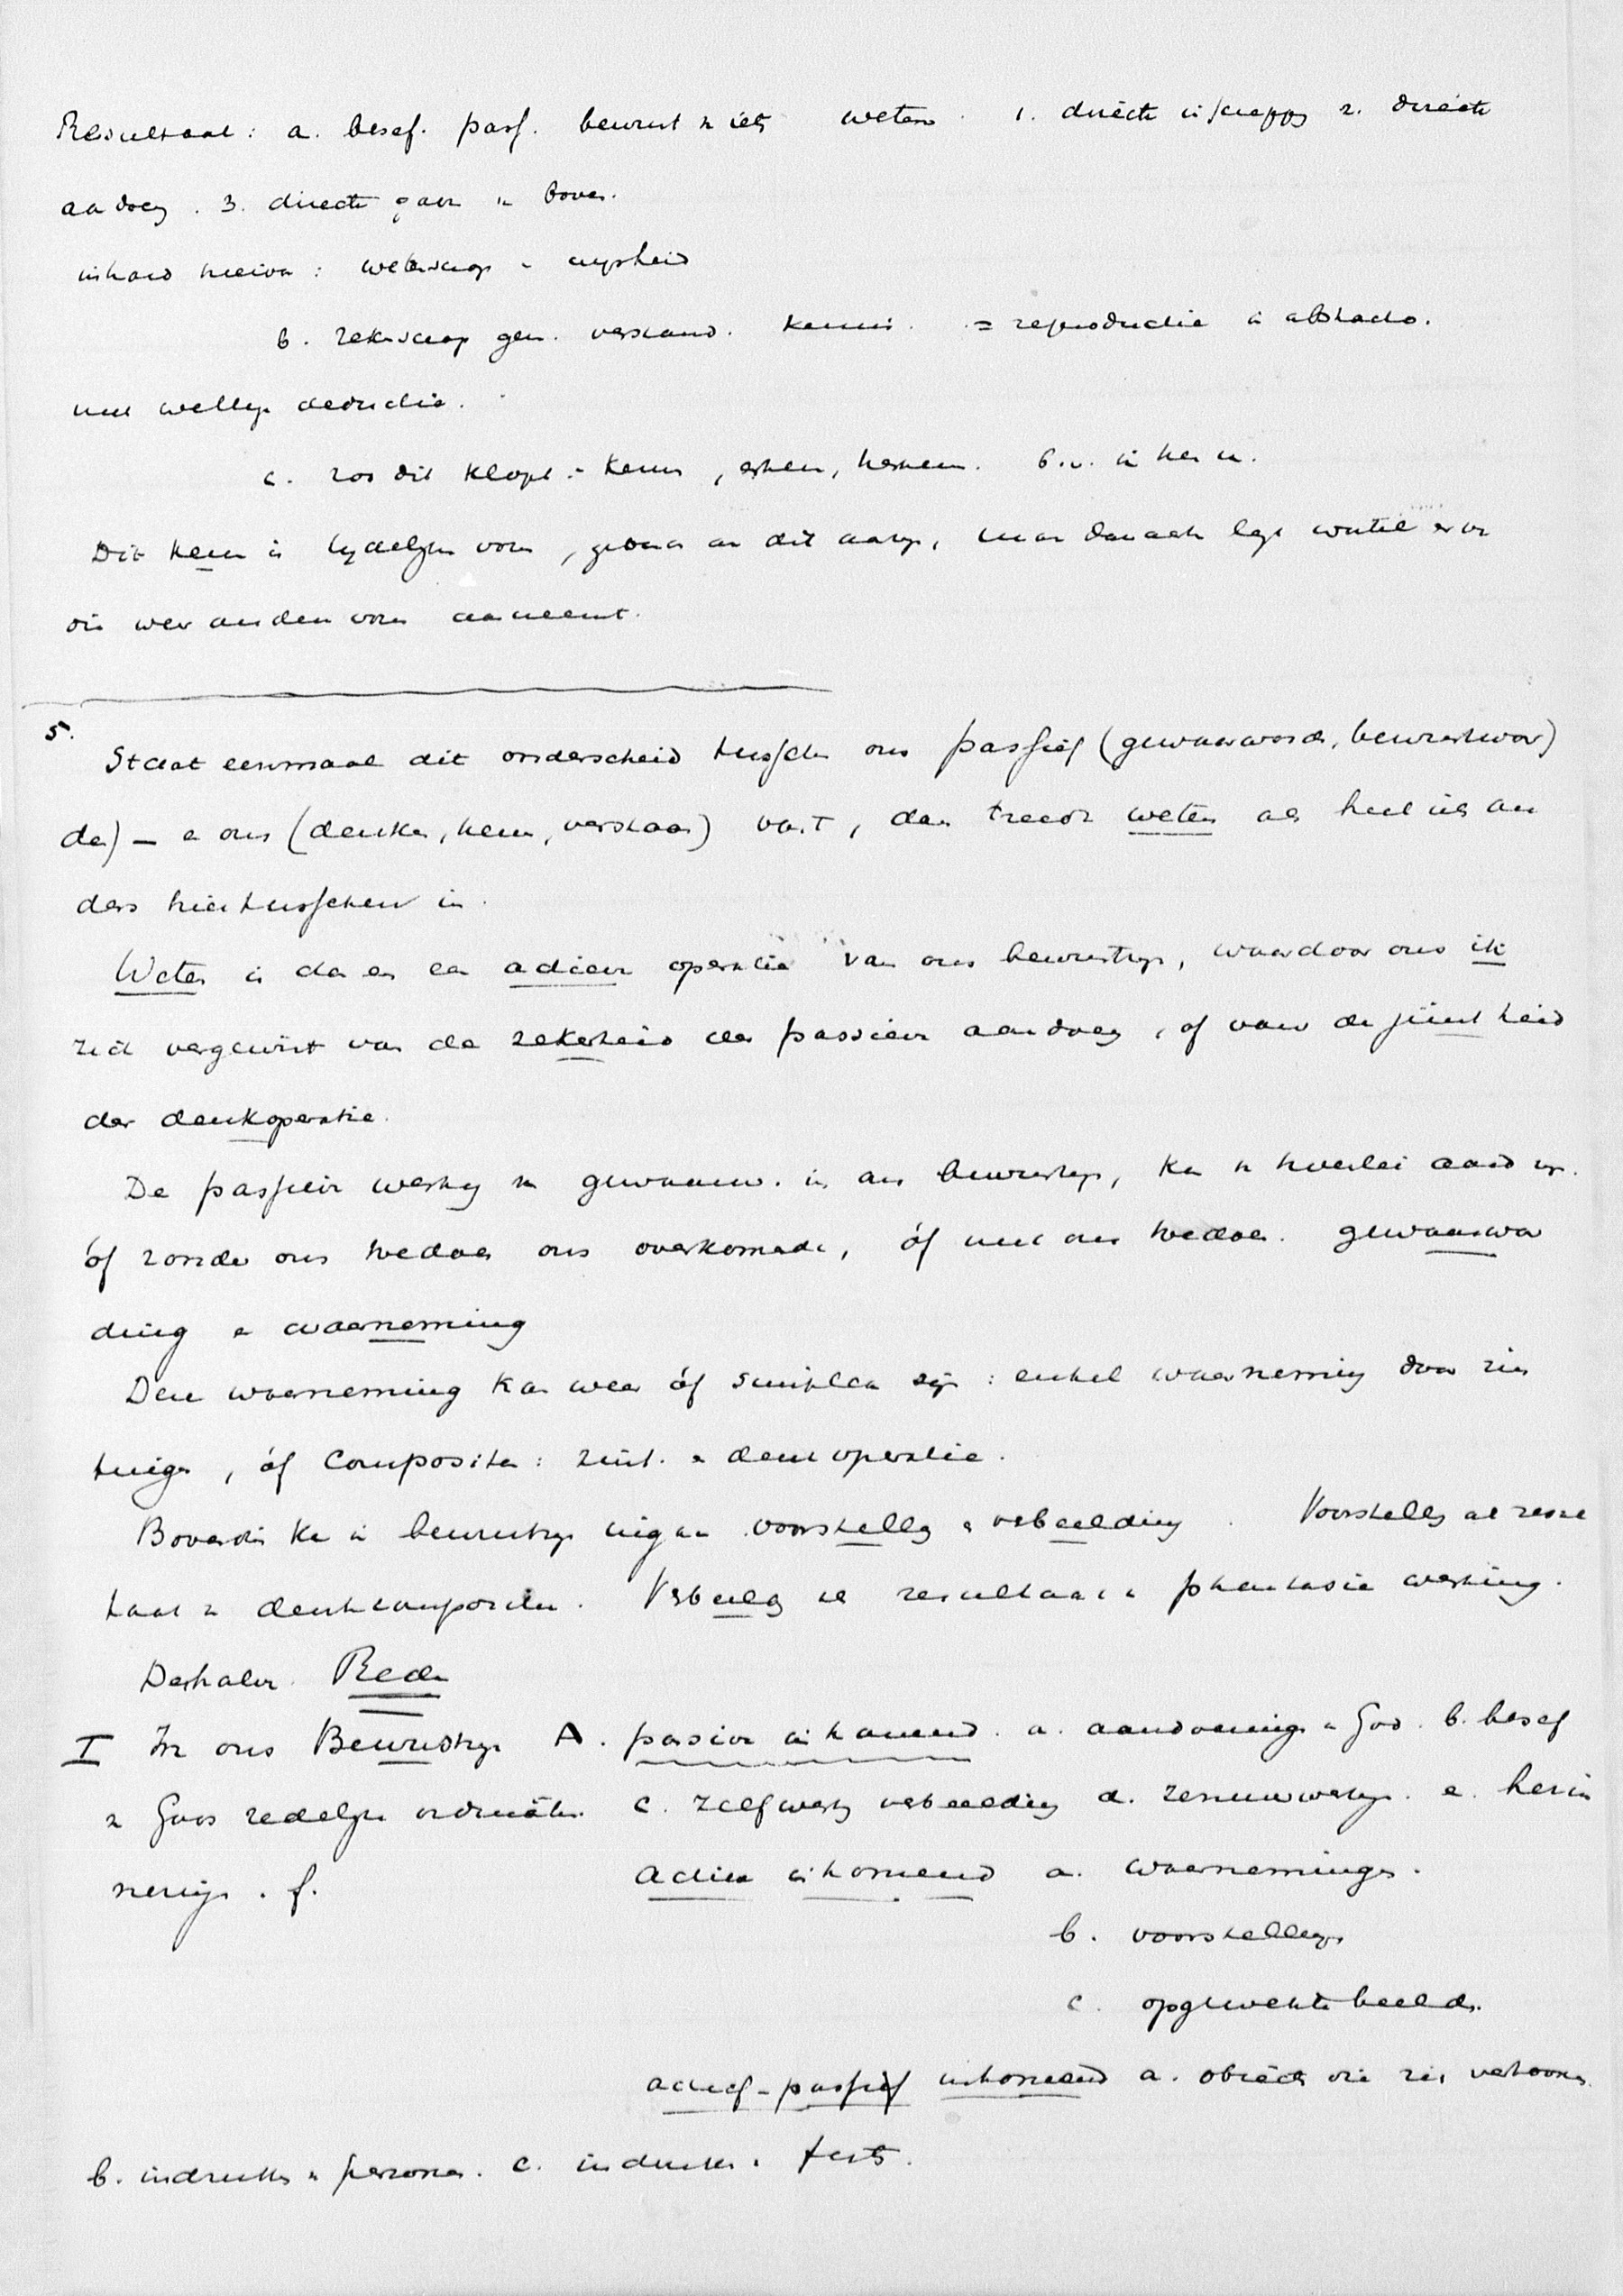 Resultaat: a. besef. pass. bewust v iets weten. 1. directe inscheppg 2. directe
aandoeg. 3. directe gave v boven.
inhoud hiervan: wetensch. v wijsheid
b. rekenschap gev. verstand. kennis. = reproductie in abstracto.
met wellige deductie.
c. zoo dit klopt = kenn, erken, herken. b.v. in hem.
Dit kenn is tydelyke vorm, gebond. an dit aanzyn, maar daarachter ligt wortel
die weer anderen vorm aanneemt.
5. Staat eenmaal dit onderscheid tusschen ons passief (gewaarworden, bewustwor)
den) — en ons (denken, kenn, verstaan) vast, dan treedt weten als heel iets an
ders hiertusschen in.
Weten is dan en een actieve operatie van ons bewustzyn, waardoor ons ik
zich vergewist van de zekerheid der passieve aandoeng, of van de juistheid
der denkoperatie.
De passieve werkg v gewaarw. in ons bewustzyn, kan v tweeërlei aard zyn.
óf zonder ons toedoen ons overkomende, óf met ons toedoen. gewaarwor
ding en waarneming
Deze waarneming kan weer óf simplex zijn: enkel waarneming door zin
tuigen, óf composita: zint. en denkoperatie.
Bovendien kan in bewustzyn ingaan voorstellg en verbeelding. Voorstellg als resul
taat v denkcompositie. Verbeeldg als resultaat v phantasie werking.
Derhalve Rede
I In ons Bewustzyn A. passive inkomend. a. aandoeningen v God. b. besef
v Gods redelyke ordinatie. c. zelfwerkg verbeelding d. zenuwwerkg. e. herin
neringn. f. active inkomend a. waarnemingen.
b. voorstellingn
c. opgewekte beelden.
actief-passief inkomend a. objecten die zich vertoonen.
b. indrukken v personen. c. indrukken v feits.